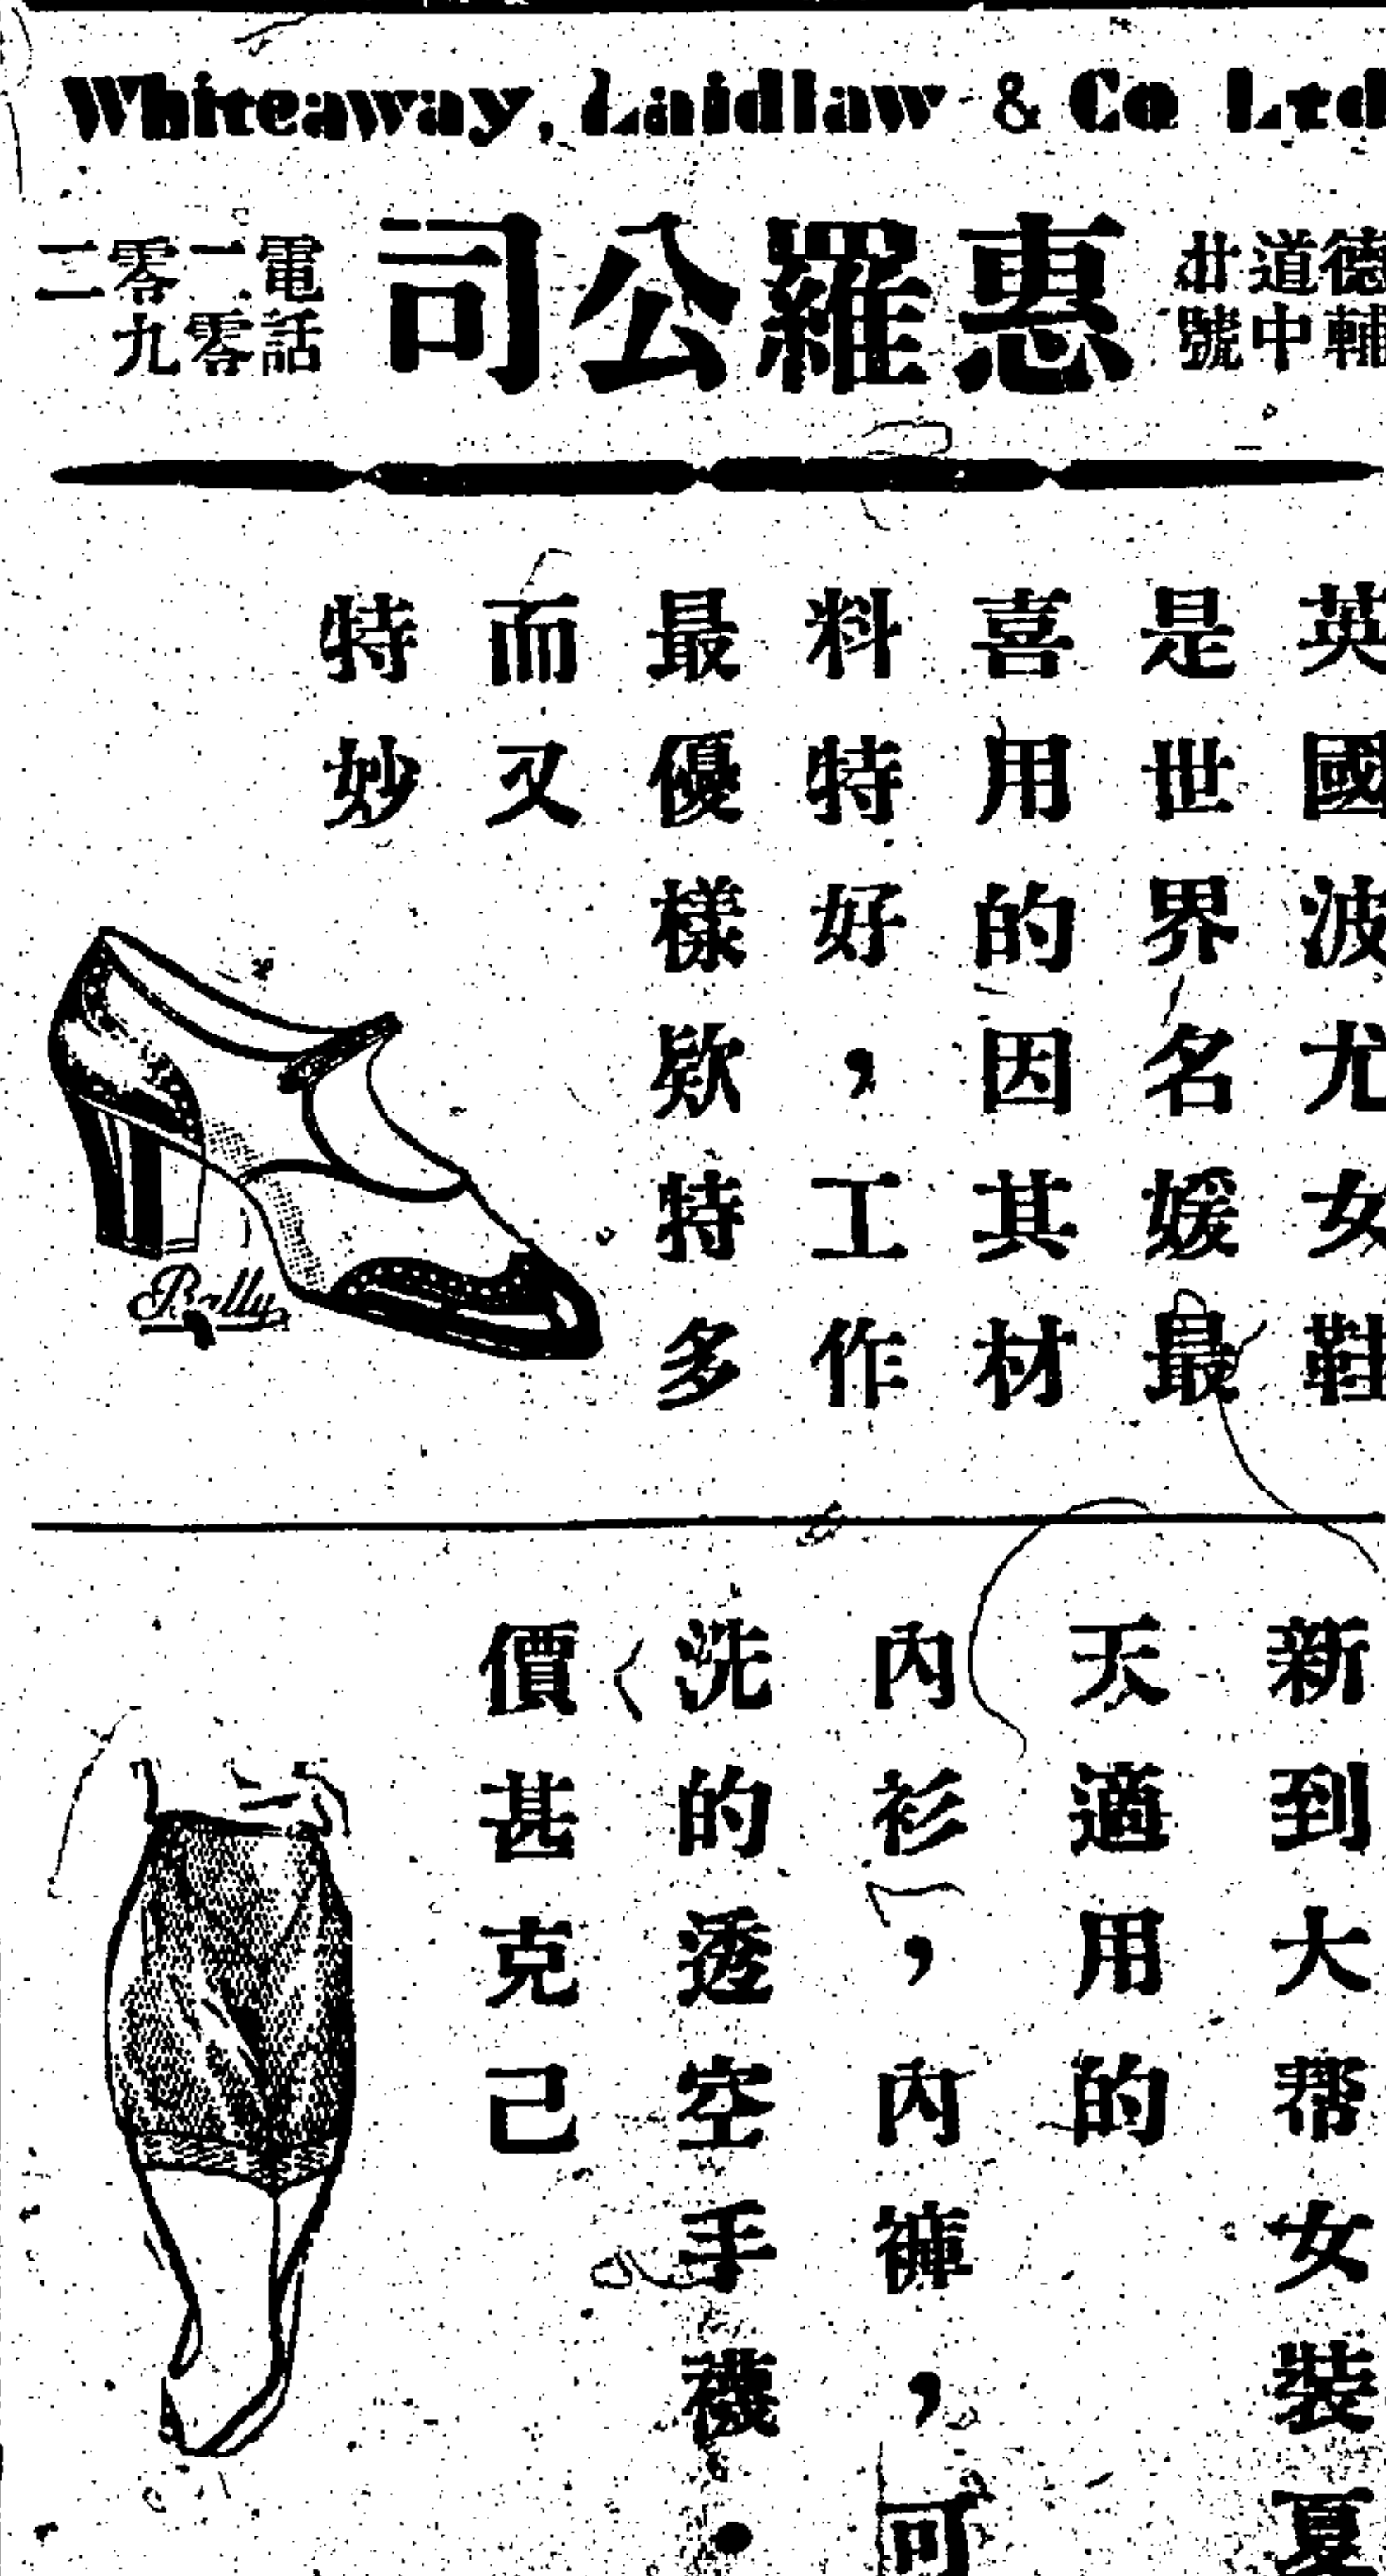 Whiteaway, Laidlaw & Co Ltd
惠羅公司
德輔
道中
廿號
電話
二零
零九
二
英國波尤女鞋
是世界名媛最
喜用的因其材
料特好，工作
最優樣欵特多
而又
特妙
Bally
新到大帮女裝夏
天適用的
內衫，內褲，可
洗的透空手襪．
價甚克己